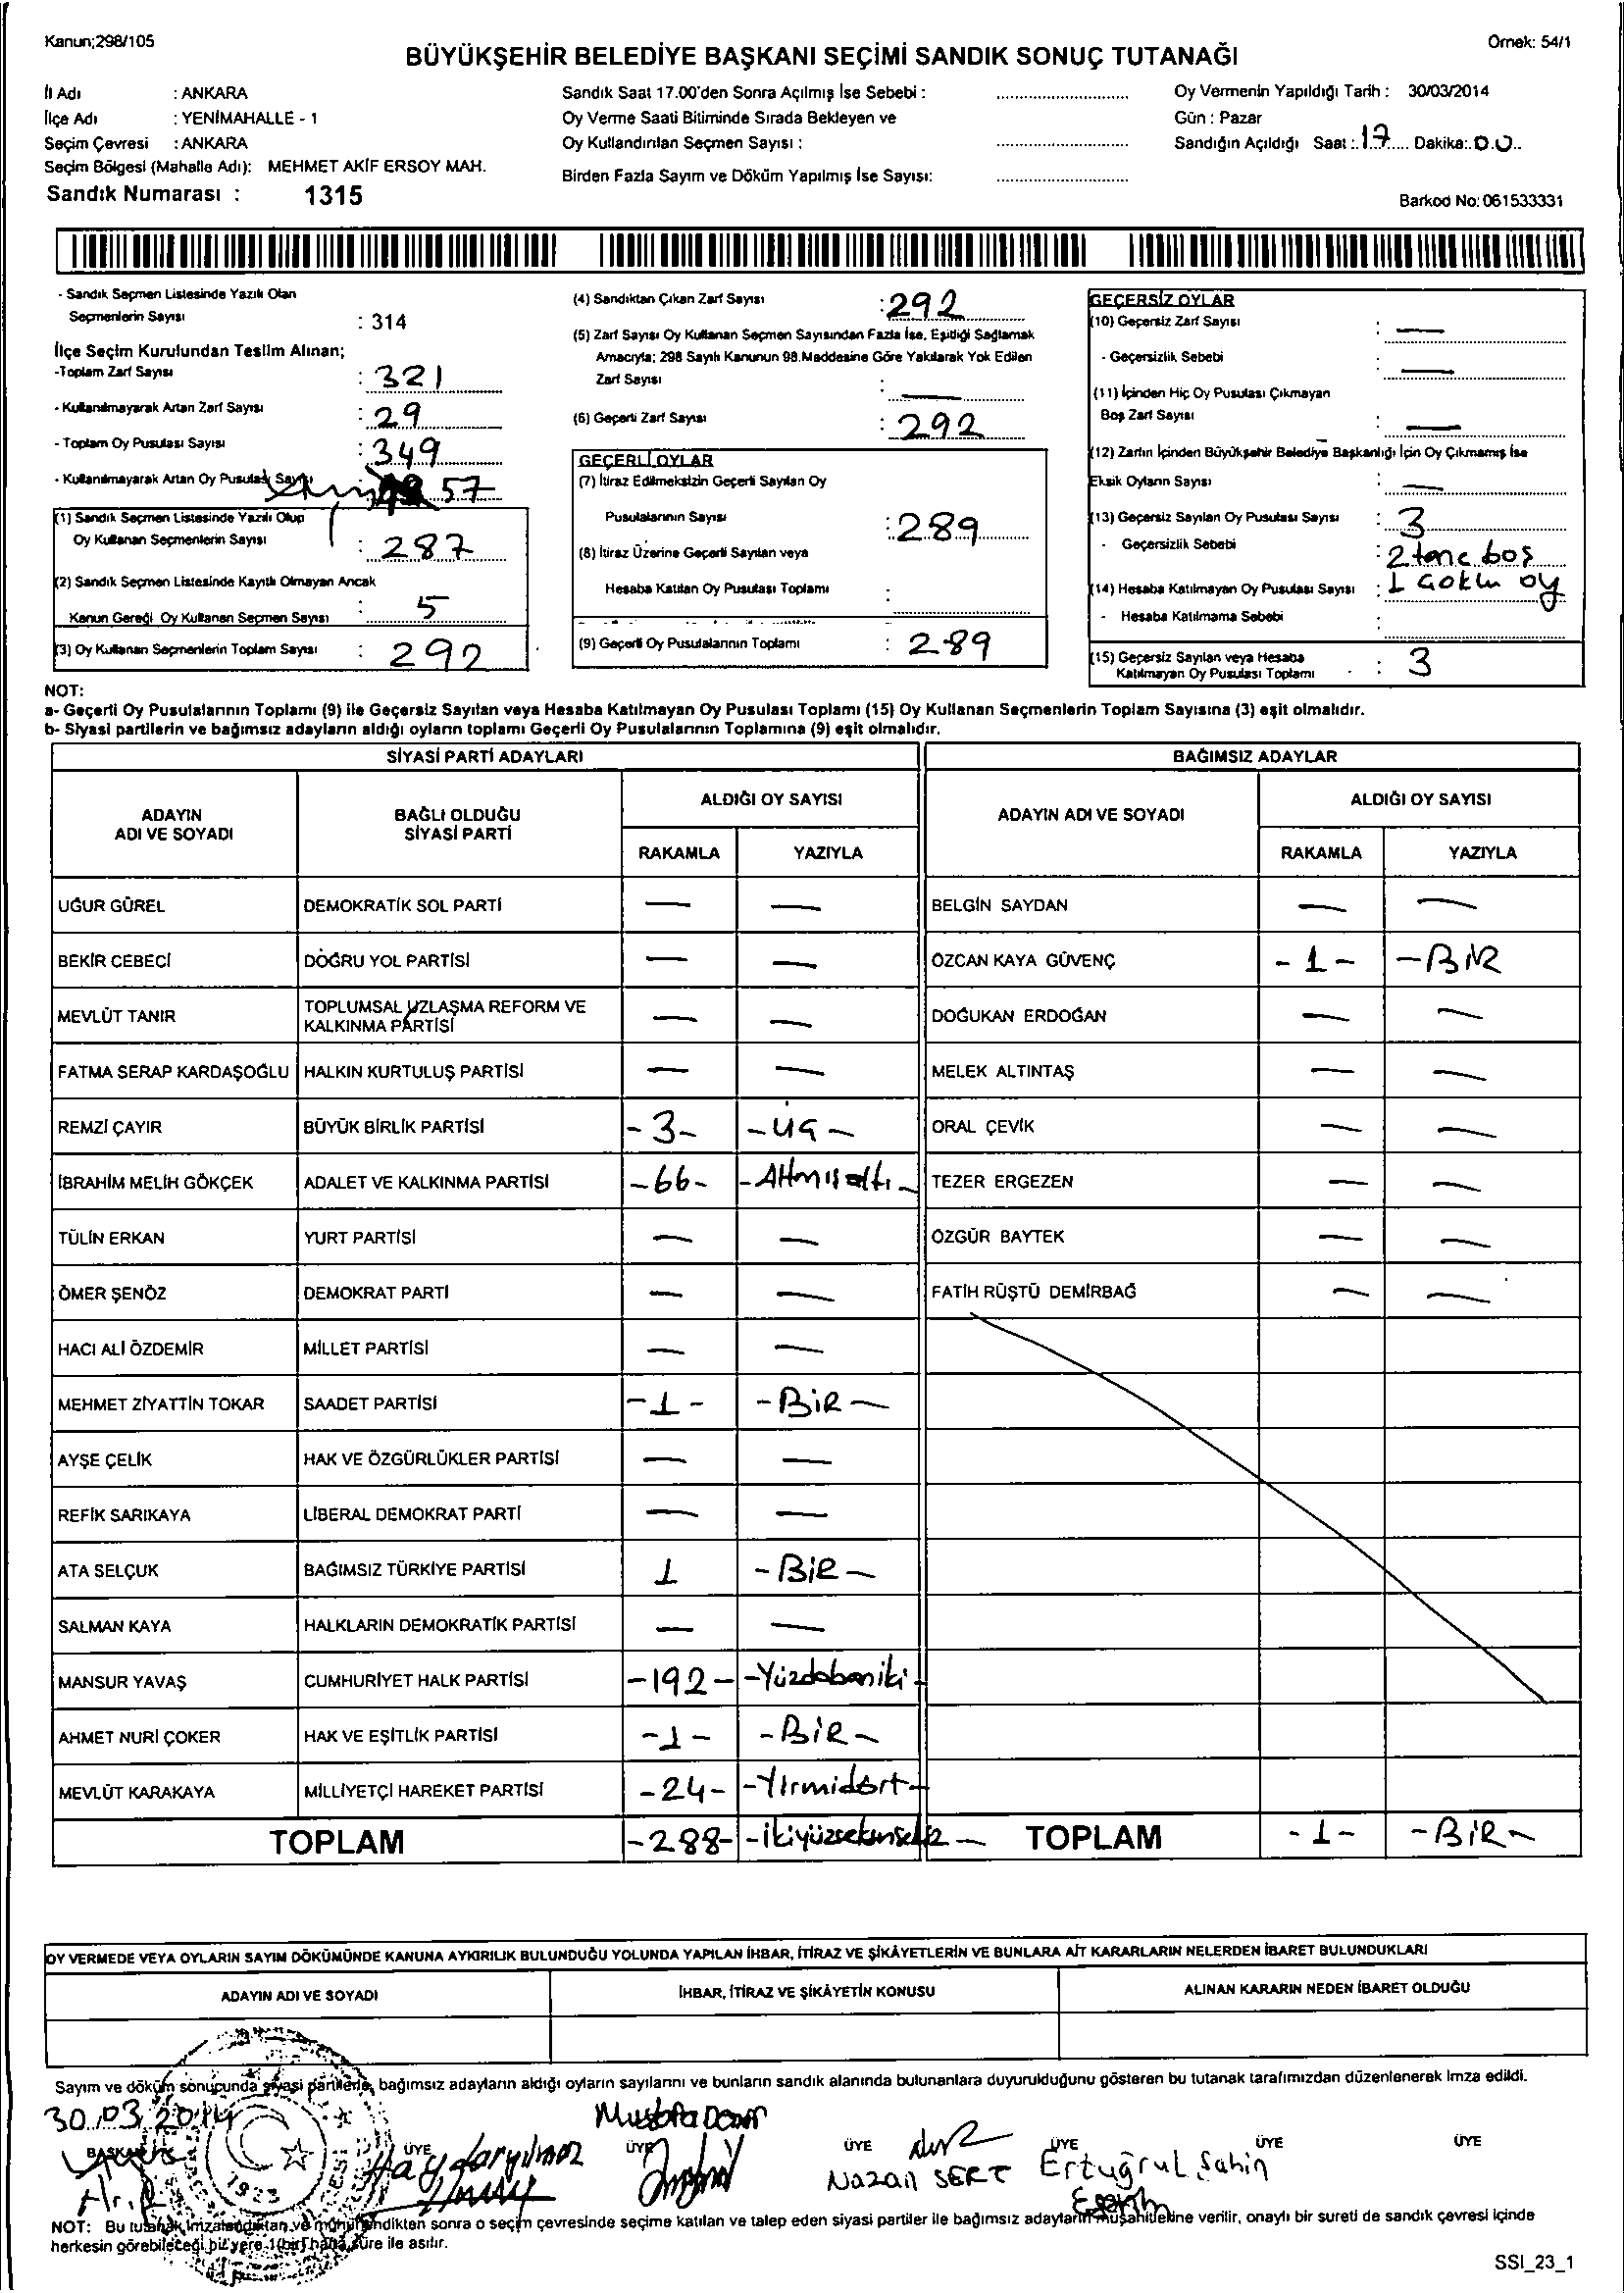 Kanun;298/105
Örnek: 54/1
BÜYÜKŞEHİR BELEDİYE BAŞKANI SEÇİMİ SANDIK SONUÇ TUTANAĞI
İl Adı : ANKARA
İlçe Adı : YENİMAHALLE - 1
Seçim Çevresi : ANKARA
Seçim Bölgesi (Mahalle Adı): MEHMET AKİF ERSOY MAH.
Sandık Numarası : 1315
Sandık Saat 17.00'den Sonra Açılmış İse Sebebi :
Oy Verme Saati Bitiminde Sırada Bekleyen ve
Oy Kullandırılan Seçmen Sayısı :
Birden Fazla Sayım ve Döküm Yapılmış İse Sayısı:
Oy Vermenin Yapıldığı Tarih : 30/03/2014
Gün : Pazar
Sandığın Açıldığı Saat : 17 Dakika: 00
Barkod No: 061533331
- Sandık Seçmen Listesinde Yazılı Olan
Seçmenlerin Sayısı : 314
İlçe Seçim Kurulundan Teslim Alınan;
-Toplam Zarf Sayısı : 321
- Kullanılmayarak Artan Zarf Sayısı : 29
- Toplam Oy Pusulası Sayısı : 349
- Kullanılmayarak Artan Oy Pusulası Sayısı 57
(1) Sandık Seçmen Listesinde Yazılı Olup
Oy Kullanan Seçmenlerin Sayısı : 287
(2) Sandık Seçmen Listesinde Kayıtlı Olmayan Ancak
Kanun Gereği Oy Kullanan Seçmen Sayısı : 5
(3) Oy Kullanan Seçmenlerin Toplam Sayısı : 292
(4) Sandıktan Çıkan Zarf Sayısı : 292
(5) Zarf Sayısı Oy Kullanan Seçmen Sayısından Fazla İse, Eşitliği Sağlamak
Amacıyla; 298 Sayılı Kanunun 98.Maddesine Göre Yakılarak Yok Edilen
Zarf Sayısı : —
(6) Geçerli Zarf Sayısı : 292
GEÇERLİ OYLAR
(7) İtiraz Edilmeksizin Geçerli Sayılan Oy
Pusulalarının Sayısı : 289
(8) İtiraz Üzerine Geçerli Sayılan veya
Hesaba Katılan Oy Pusulası Toplamı :
(9) Geçerli Oy Pusulalarının Toplamı : 289
GEÇERSİZ OYLAR
(10) Geçersiz Zarf Sayısı : —
- Geçersizlik Sebebi : —
(11) İçinden Hiç Oy Pusulası Çıkmayan
Boş Zarf Sayısı : —
(12) Zarfın İçinden Büyükşehir Belediye Başkanlığı İçin Oy Çıkmamış İse
Eksik Oyların Sayısı : —
(13) Geçersiz Sayılan Oy Pusulası Sayısı : 3
- Geçersizlik Sebebi : 2 tane boş
(14) Hesaba Katılmayan Oy Pusulası Sayısı : 1 çoklu oy
- Hesaba Katılmama Sebebi :
(15) Geçersiz Sayılan veya Hesaba
Katılmayan Oy Pusulası Toplamı : 3
NOT:
a- Geçerli Oy Pusulalarının Toplamı (9) ile Geçersiz Sayılan veya Hesaba Katılmayan Oy Pusulası Toplamı (15) Oy Kullanan Seçmenlerin Toplam Sayısına (3) eşit olmalıdır.
b- Siyasi partilerin ve bağımsız adayların aldığı oyların toplamı Geçerli Oy Pusulalarının Toplamına (9) eşit olmalıdır.
SİYASİ PARTİ ADAYLARI
BAĞIMSIZ ADAYLAR
ADAYIN
ADI VE SOYADI
BAĞLI OLDUĞU
SİYASİ PARTİ
ALDIĞI OY SAYISI
RAKAMLA YAZIYLA
ADAYIN ADI VE SOYADI
ALDIĞI OY SAYISI
RAKAMLA YAZIYLA
UĞUR GÜREL DEMOKRATİK SOL PARTİ — — BELGİN SAYDAN — —
BEKİR CEBECİ DOĞRU YOL PARTİSİ — — ÖZCAN KAYA GÜVENÇ - 1 - -BİR
MEVLÜT TANIR TOPLUMSAL UZLAŞMA REFORM VE
KALKINMA PARTİSİ — — DOĞUKAN ERDOĞAN — —
FATMA SERAP KARDAŞOĞLU HALKIN KURTULUŞ PARTİSİ — — MELEK ALTINTAŞ — —
REMZİ ÇAYIR BÜYÜK BİRLİK PARTİSİ - 3 - - üç - ORAL ÇEVİK — —
İBRAHİM MELİH GÖKÇEK ADALET VE KALKINMA PARTİSİ -66- -Altmışaltı- TEZER ERGEZEN — —
TÜLİN ERKAN YURT PARTİSİ — — ÖZGÜR BAYTEK — —
ÖMER ŞENÖZ DEMOKRAT PARTİ — — FATİH RÜŞTÜ DEMİRBAĞ — —
HACI ALİ ÖZDEMİR MİLLET PARTİSİ — —
MEHMET ZİYATTİN TOKAR SAADET PARTİSİ -1- -BİR-
AYŞE ÇELİK HAK VE ÖZGÜRLÜKLER PARTİSİ — —
REFİK SARIKAYA LİBERAL DEMOKRAT PARTİ — —
ATA SELÇUK BAĞIMSIZ TÜRKİYE PARTİSİ 1 -BİR-
SALMAN KAYA HALKLARIN DEMOKRATİK PARTİSİ — —
MANSUR YAVAŞ CUMHURİYET HALK PARTİSİ -192- -Yüzdoksaniki-
AHMET NURİ ÇOKER HAK VE EŞİTLİK PARTİSİ -1- -BİR-
MEVLÜT KARAKAYA MİLLİYETÇİ HAREKET PARTİSİ -24- -Yirmidört-
TOPLAM -288- -ikiyüzseksensekiz- TOPLAM -1- -BİR-
OY VERMEDE VEYA OYLARIN SAYIM DÖKÜMÜNDE KANUNA AYKIRILIK BULUNDUĞU YOLUNDA YAPILAN İHBAR, İTİRAZ VE ŞİKÂYETLERİN VE BUNLARA AİT KARARLARIN NELERDEN İBARET BULUNDUKLARI
ADAYIN ADI VE SOYADI İHBAR, İTİRAZ VE ŞİKÂYETİN KONUSU ALINAN KARARIN NEDEN İBARET OLDUĞU
Sayım ve döküm sonucunda siyasi partilerle, bağımsız adayların aldığı oyların sayılarını ve bunların sandık alanında bulunanlara duyurulduğunu gösteren bu tutanak tarafımızdan düzenlenerek imza edildi.
30.03.2014
BAŞKAN ÜYE ÜYE ÜYE ÜYE ÜYE ÜYE
Nazan SERT Ertuğrul Şahin
1923
NOT: Bu tutanak imzalandıktan ve mühürlendikten sonra o seçim çevresinde seçime katılan ve talep eden siyasi partiler ile bağımsız adayların müşahitlerine verilir, onaylı bir sureti de sandık çevresi içinde
herkesin görebileceği bir yere 1(bir) hafta süre ile asılır.
SSI_23_1